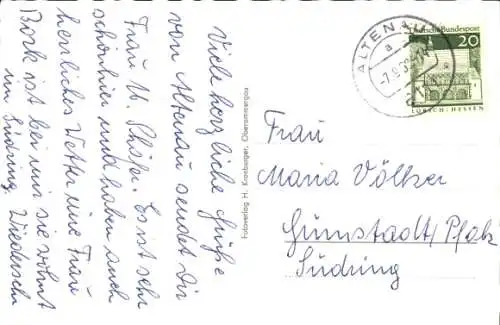 Viele herzliche Grüße
von Altenau sendet Dir
Frau U. Es ist sehr
schön hier und haben auch
herrliches Wetter eine Frau
Bork ist bei mir sie wohnt
im Südring. Wiedersehn
Fotoverlag H. Kronberger, Oberammergau
ALTENAU
a
Deutsche Bundespost
20
LORSCH · HESSEN
Frau
Maria Völker
Grünstadt/Pfalz
Südring